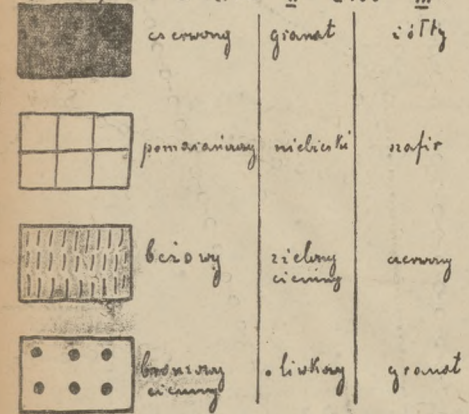 II III
czerwony granat żółty
pomarańczowy niebieski szafir
beżowy zielony ciemny czerwony
bronzowy ciemny oliwkowy granat